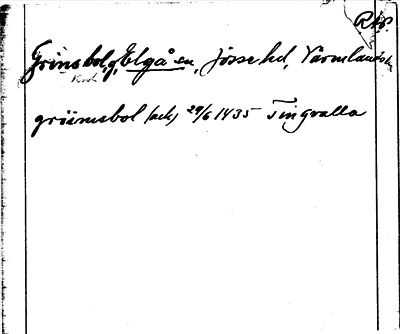 RAp
Grinsbol, g, Elgå sn, Jösse hd, Värmlands l.
griimsbol (ack) 29/6 1435 Tingvalla